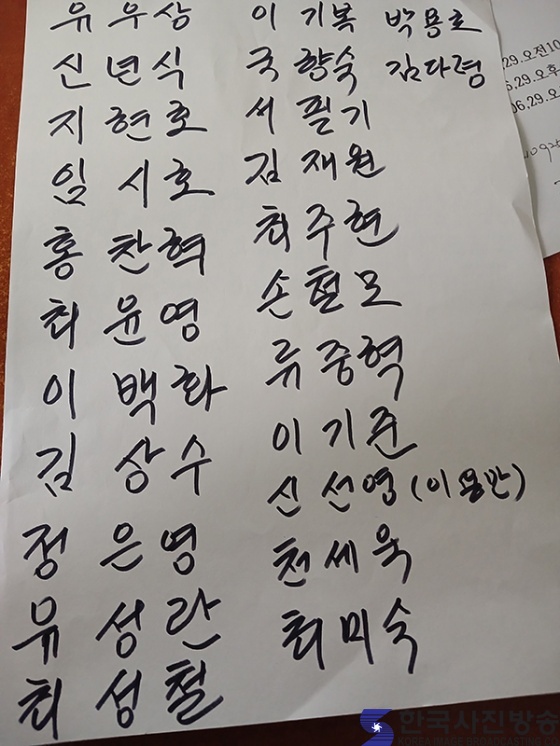 유우상 이기복 박용호
신년식 국향숙 김다령
지현호 서필기
임시호 김재원
홍찬혁 최주현
최윤영 손현모
이백화 류중혁
김상수 이기준
신선영(이용만)
정은영 천세욱
유성란 최미숙
최성철
29.오전10
6.29.오후
06.29.오
한국사진방송